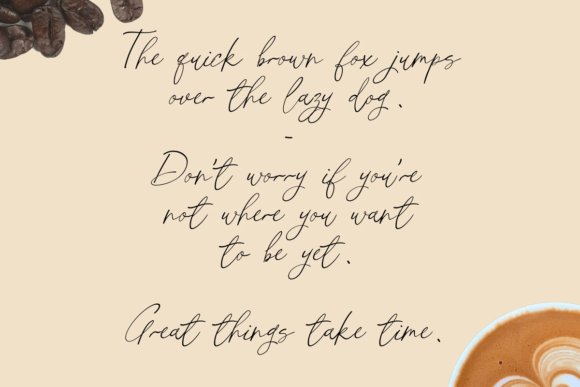 The quick brown fox jumps
over the lazy dog.
-
Don't worry if you're
not where you want
to be yet.
Great things take time.